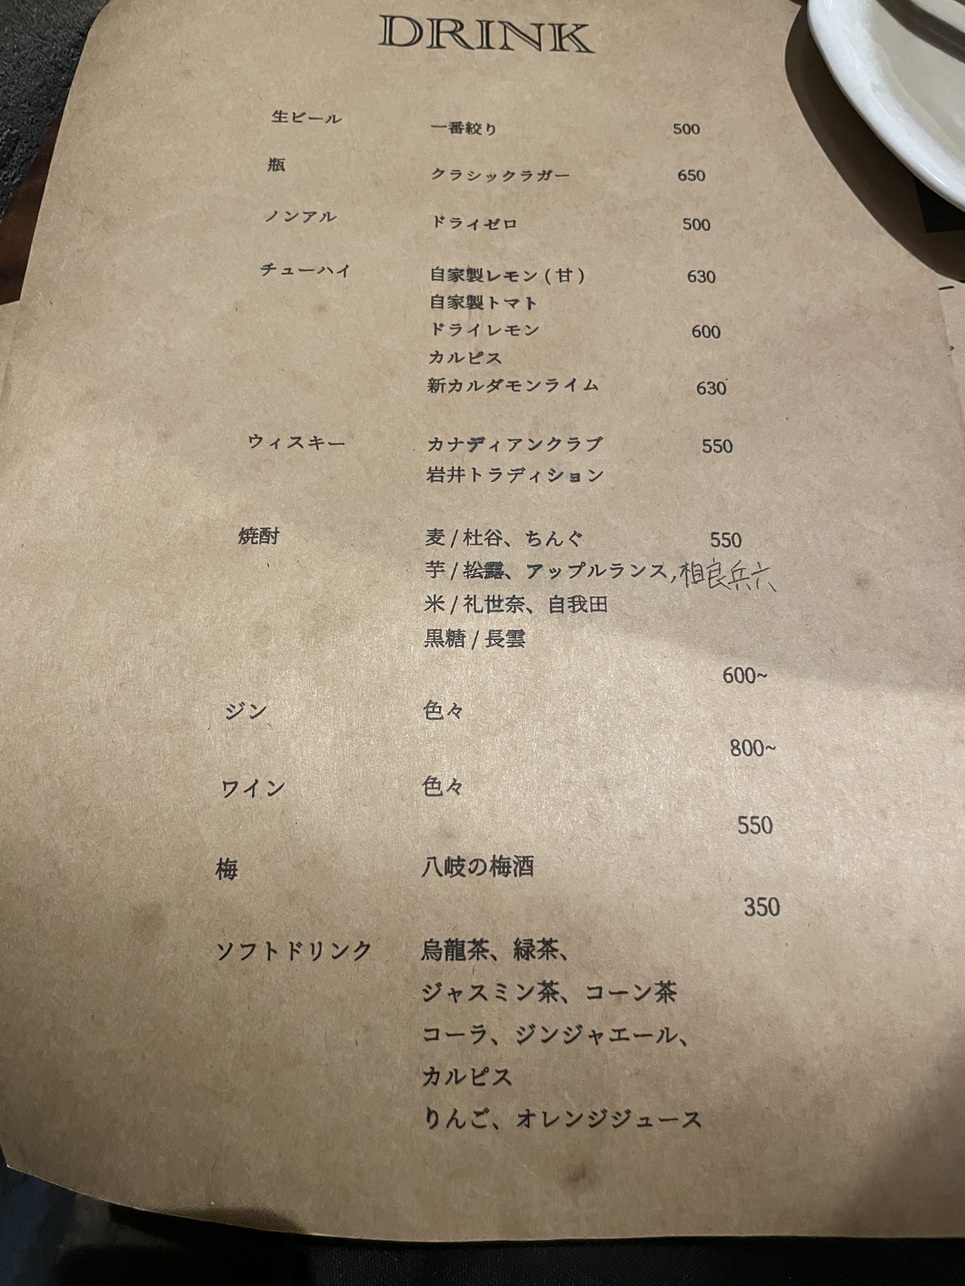 DRINK
生ビール 一番絞り 500
瓶 クラシックラガー 650
ノンアル ドライゼロ 500
チューハイ 自家製レモン（甘） 630
自家製トマト
ドライレモン 600
カルピス
新カルダモンライム 630
ウィスキー カナディアンクラブ 550
岩井トラディション
焼酎 麦/杜谷、ちんぐ 550
芋/松露、アップルランス,相良兵六
米/礼世奈、自我田
黒糖/長雲
600~
ジン 色々
800~
ワイン 色々
550
梅 八岐の梅酒
350
ソフトドリンク 烏龍茶、緑茶、
ジャスミン茶、コーン茶
コーラ、ジンジャエール、
カルピス
りんご、オレンジジュース